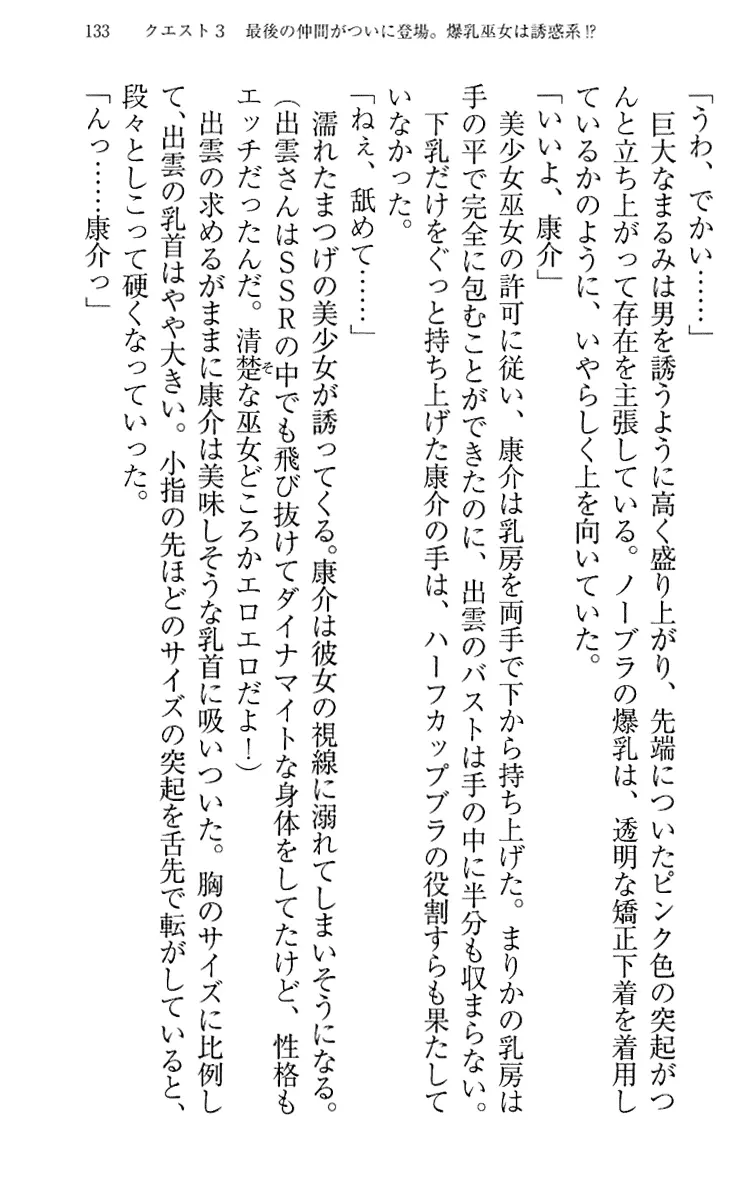 133　クエスト３　最後の仲間がついに登場。爆乳巫女は誘惑系!?
「うわ、でかい……」
　巨大なまるみは男を誘うように高く盛り上がり、先端についたピンク色の突起がつ
んと立ち上がって存在を主張している。ノーブラの爆乳は、透明な矯正下着を着用し
ているかのように、いやらしく上を向いていた。
「いいよ、康介」
　美少女巫女の許可に従い、康介は乳房を両手で下から持ち上げた。まりかの乳房は
手の平で完全に包むことができたのに、出雲のバストは手の中に半分も収まらない。
　下乳だけをぐっと持ち上げた康介の手は、ハーフカップブラの役割すらも果たして
いなかった。
「ねぇ、舐めて……」
　濡れたまつげの美少女が誘ってくる。康介は彼女の視線に溺れてしまいそうになる。
（出雲さんはＳＳＲの中でも飛び抜けてダイナマイトな身体をしてたけど、性格も
エッチだったんだ。清楚そな巫女どころかエロエロだよ！）
　出雲の求めるがままに康介は美味しそうな乳首に吸いついた。胸のサイズに比例し
て、出雲の乳首はやや大きい。小指の先ほどのサイズの突起を舌先で転がしていると、
段々としこって硬くなっていった。
「んっ……康介っ」